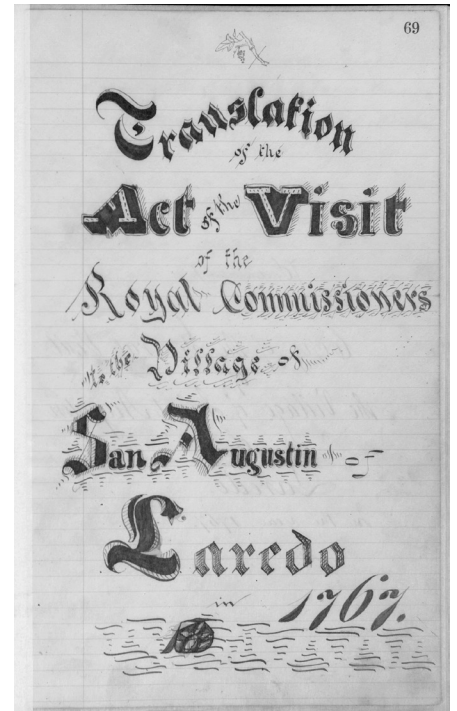 69
Translation
of the
Act of the Visit
of the
Royal Commissioners
to the Village of
San Augustin of
Laredo
in 1767.